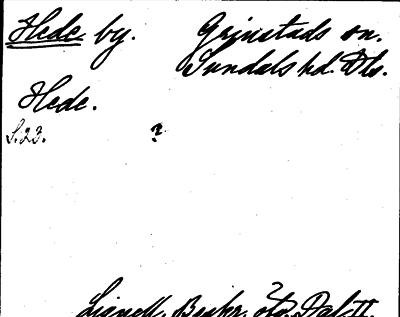 Hede by. Grinstads sn.
Sundals hd. Dls.
Hede.
S.23. ?
Lignell, Beskr. öfv. Dal II.